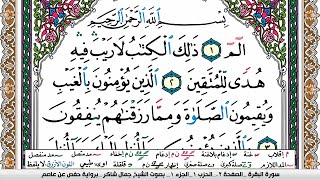 بِسْمِ اللَّهِ الرَّحْمَٰنِ الرَّحِيمِ
الٓمٓ ١ ذَٰلِكَ الْكِتَٰبُ لَا رَيْبَ فِيهِ
هُدًى لِّلْمُتَّقِينَ ٢ الَّذِينَ يُؤْمِنُونَ بِالْغَيْبِ
وَيُقِيمُونَ الصَّلَوٰةَ وَمِمَّا رَزَقْنَٰهُمْ يُنفِقُونَ
سورة البقرة . الصفحة ٢ . الحزب ١ . الجزء ١ . بصوت الشيخ جمال شاكر . برواية حفص عن عاصم